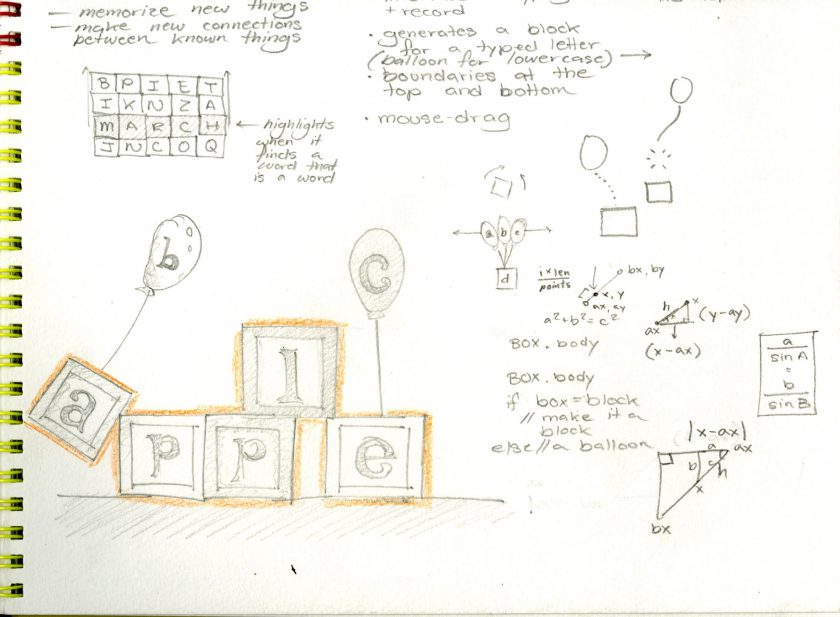 — memorize new things
— make new connections
between known things
B P I E T
I K N Z A
M A R C H
I N C O Q
← highlights
when it
finds a
word that
is a word
+ record
· generates a block
for a typed letter
(balloon for lowercase) →
· boundaries at the
top and bottom
· mouse-drag
a b c
d
i × len
points
bx, by
x, y
ax, ay
a² + b² = c²
h
x
ax
(y-ay)
(x-ax)
BOX.body
BOX.body
if box = block
// make it a
block
else // a balloon
a
sin A
=
b
sin B
|x-ax|
a
ax
b
c
h
x
bx
b
c
l
a
p
p
e